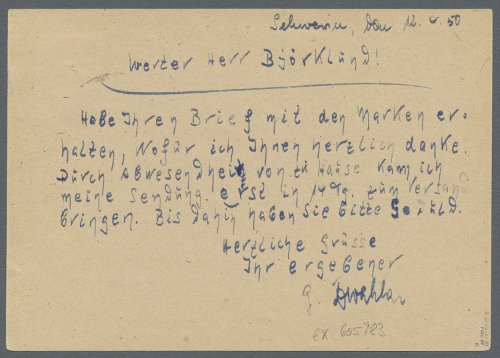 Schwerin, den 12.4.50
Werter Herr Björklund!
Habe Ihren Brief mit den Marken er-
halten, wofür ich Ihnen herzlich danke.
Durch Abwesenheit von zu Hause kam ich
meine Sendung erst in 14 Tg. zum Versand
bringen. Bis dahin haben Sie bitte Geduld.
Herzliche Grüsse
Ihr ergebener
ex 605783